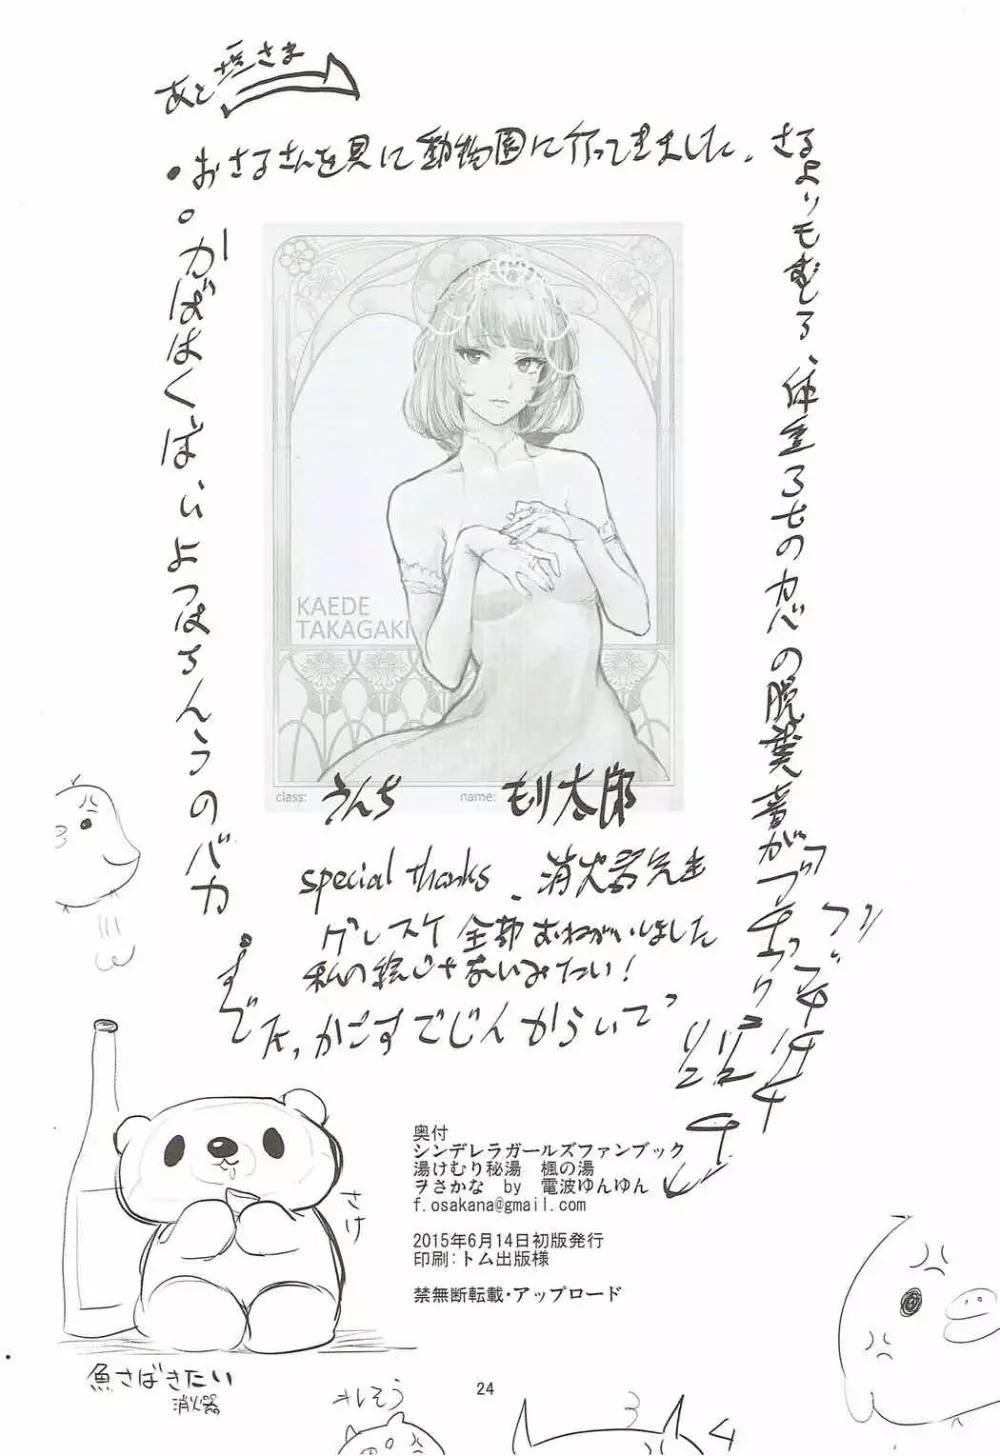 あと垣さま
•おさるさんを見に動物園に行ってきました。さるよりもむしろ、体重3tのカバの脱糞音が
ブ
ブリ
•かばはくばいよつはちんうのバカ
KAEDE
TAKAGAKI
class: うんち name: もり太郎
special thanks 消火器先生
グレスケ全部おねがいしました
私の絵じゃないみたい!
•すでたっかごすでじんからいてっ
さけ
奥付
シンデレラガールズファンブック
湯けむり秘湯 楓の湯
ヲさかな by 電波ゆんゆん
f.osakana@gmail.com
2015年6月14日初版発行
印刷:トム出版様
禁無断転載・アップロード
魚さばきたい
消火器
オレそう
24